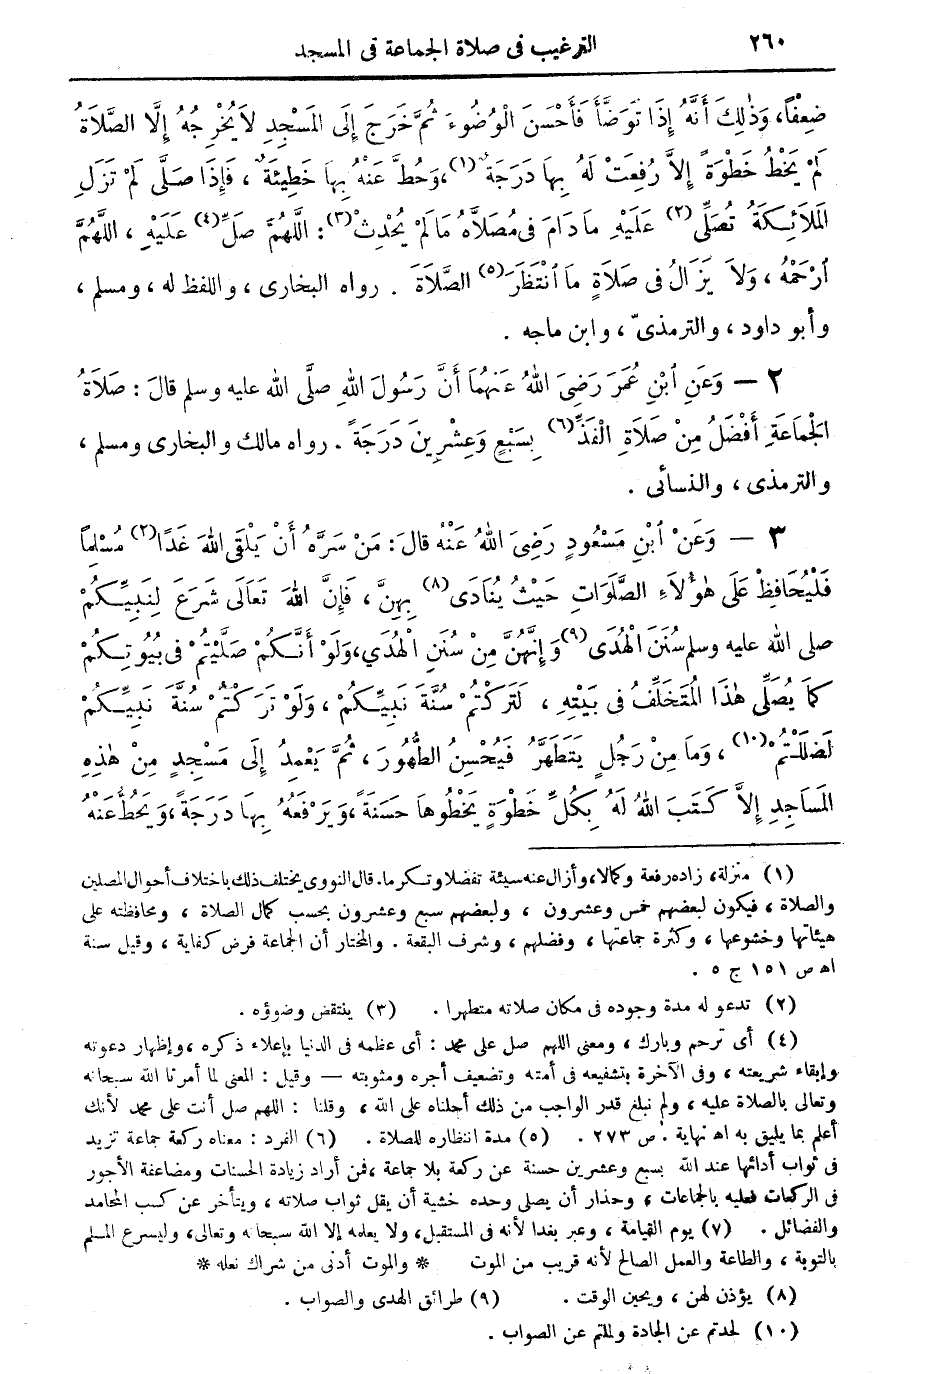 ٢٦٠ الترغيب فى صلاة الجماعة فى المسجد
ضِعْفًا، وَذٰلِكَ أَنَّهُ إِذَا تَوَضَّأَ فَأَحْسَنَ الْوُضُوءَ ثُمَّ خَرَجَ إِلَى الْمَسْجِدِ لَا يُخْرِجُهُ إِلَّا الصَّلَاةُ
لَمْ يَخْطُ خَطْوَةً إِلاَّ رُفِعَتْ لَهُ بِهَا دَرَجَةٌ (١)، وَحُطَّ عَنْهُ بِهَا خَطِيئَةٌ ، فَإِذَا صَلَّى لَمْ تَزَلِ
الْمَلَائِكَةُ تُصَلِّى (٢) عَلَيْهِ مَا دَامَ فِى مُصَلاَّهُ مَا لَمْ يُحْدِثْ (٣) : اللَّهُمَّ صَلِّ (٤) عَلَيْهِ ، اللَّهُمَّ
ارْحَمْهُ ، وَلاَ يَزَالُ فِى صَلَاةٍ مَا انْتَظَرَ (٥) الصَّلَاةَ . رواه البخارى ، واللفظ له ، ومسلم ،
وأبو داود ، والترمذىّ ، وابن ماجه .
٢ — وَعَنِ ابْنِ عُمَرَ رَضِىَ اللهُ عَنْهُمَا أَنَّ رَسُولَ اللهِ صلَّى الله عليه وسلم قالَ : صَلَاةُ
الْجَمَاعَةِ أَفْضَلُ مِنْ صَلَاةِ الْفَذِّ (٦) بِسَبْعٍ وَعِشْرِينَ دَرَجَةً . رواه مالك والبخارى ومسلم ،
والترمذى ، والنسائى .
٣ — وَعَنْ ابْنِ مَسْعُودٍ رَضِىَ اللهُ عَنْهُ قالَ : مَنْ سَرَّهُ أَنْ يَلْقَى اللهَ غَدًا (٢) مُسْلِمًا
فَلْيُحَافِظْ عَلَى هٰؤُلاَءِ الصَّلَوَاتِ حَيْثُ يُنَادَى (٨) بِهِنَّ ، فَإِنَّ اللهَ تَعَالَى شَرَعَ لِنَبِيِّكُمْ
صلى الله عليه وسلم سُنَنَ الْهُدَى (٩) وَإِنَّهُنَّ مِنْ سُنَنِ الْهُدَي، وَلَوْ أَنَّكُمْ صَلَّيْتُمْ فى بُيُوتِكُمْ
كَمَا يُصَلِّى هٰذَا الْمُتَخَلِّفُ فى بَيْتِهِ ، لَتَرَكْتُمْ سُنَّةَ نَبِيِّكُمْ ، وَلَوْ تَرَكْتُمْ سُنَّةَ نَبِيِّكُمْ
لَضَلَلْتُمْ (١٠) ، وَمَا مِنْ رَجُلٍ يَتَطَهَّرُ فَيُحْسِنُ الطُّهُورَ ، ثُمَّ يَعْمِدُ إِلَى مَسْجِدٍ مِنْ هٰذِهِ
الْمَسَاجِدِ إِلاَّ كَتَبَ اللهُ لَهُ بِكُلِّ خَطْوَةٍ يَخْطُوهَا حَسَنَةً، وَيَرْفَعُهُ بِهَا دَرَجَةً، وَيَحُطُّ عَنْهُ
(١) منزلة، زاده رفعة وكمالا، وأزال عنه سيئة تفضلا وتكرما. قال النووى يختلف ذلك باختلاف أحوال المصلين
والصلاة ، فيكون لبعضهم خمس وعشرون ، ولبعضهم سبع وعشرون بحسب كمال الصلاة ، ومحافظته على
هيئاتها وخشوعها ، وكثرة جماعتها ، وفضلهم ، وشرف البقعة . والمختار أن الجماعة فرض كفاية ، وقيل سنة
اه ص ١٥١ ج ٥ .
(٢) تدعو له مدة وجوده فى مكان صلاته متطهرا . (٣) ينتقض وضوؤه .
(٤) أى ترحم وبارك ، ومعنى اللهم صل على محمد : أى عظمه فى الدنيا بإعلاء ذكره ، وإظهار دعوته
وإبقاء شريعته ، وفى الآخرة بتشفيعه فى أمته وتضعيف أجره ومثوبته — وقيل : المعنى لما أمرنا الله سبحانه
وتعالى بالصلاة عليه ، ولم نبلغ قدر الواجب من ذلك أحلناه على الله ، وقلنا : اللهم صل أنت على محمد لأنك
أعلم بما يليق به اه نهاية . ص ٢٧٣ . (٥) مدة انتظاره للصلاة . (٦) الفرد : معناه ركعة جماعة تزيد
فى ثواب أدائها عند الله بسبع وعشرين حسنة عن ركعة بلا جماعة ، فمن أراد زيادة الحسنات ومضاعفة الأجور
فى الركعات فعليه بالجماعات ، وحذار أن يصلى وحده خشية أن يقل ثواب صلاته ، ويتأخر عن كسب المحامد
والفضائل . (٧) يوم القيامة ، وعبر بغدا لأنه فى المستقبل، ولا يعلمه إلا الله سبحانه وتعالى، وليسرع المسلم
بالتوبة ، والطاعة والعمل الصالح لأنه قريب من الموت * والموت أدنى من شراك نعله *
(٨) يؤذن لهن ، ويحين الوقت . (٩) طرائق الهدى والصواب .
(١٠) لحدتم عن الجادة وملتم عن الصواب .